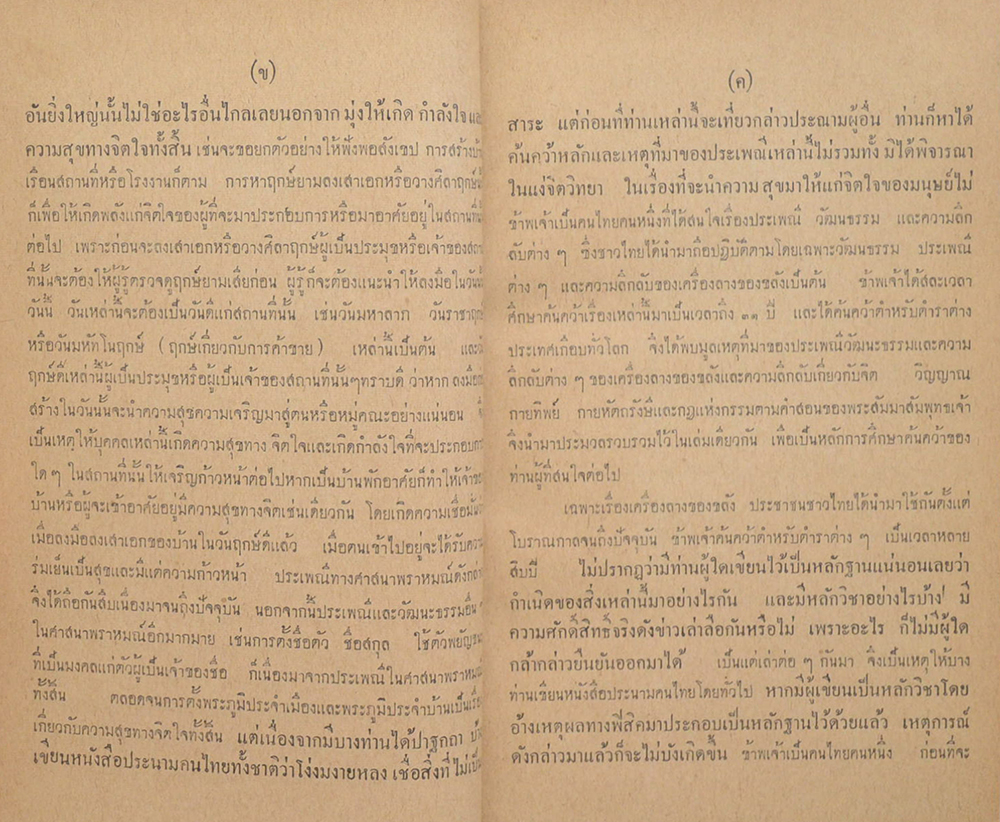 (ข)
อันยิ่งใหญ่นั้นไม่ใช่อะไรอื่นไกลเลยนอกจาก มุ่งให้เกิด กำลังใจ
ความสุขทางจิตใจทั้งสิ้น เช่นจะขอยกตัวอย่างให้ฟังพอสังเขป การสร้าง
เรือนสถานที่หรือโรงงานก็ตาม การหาฤกษ์ยามลงเสาเอกหรือวางศิลาฤกษ์
ก็เพื่อให้เกิดพลังแก่จิตใจของผู้ที่จะมาประกอบการหรือมาอาศัยอยู่ในสถานที่
ต่อไป เพราะก่อนจะลงเสาเอกหรือวางศิลาฤกษ์ผู้เป็นประมุขหรือเจ้าของ
ที่นั้นจะต้องให้ผู้รู้ตรวจดูฤกษ์ยามเสียก่อน ผู้รู้ก็จะต้องแนะนำให้ลงมือใน
วันนี้ วันเหล่านี้จะต้องเป็นวันดีแก่สถานที่นั้น เช่นวันมหาลาก วันราชา
หรือวันมหัทโนฤกษ์ (ฤกษ์เกี่ยวกับการค้าขาย) เหล่านี้เป็นต้น
ฤกษ์ดีเหล่านี้ผู้เป็นประมุขหรือผู้เป็นเจ้าของสถานที่นั้นๆทราบดี ว่าหาก
สร้างในวันนั้นจะนำความสุขความเจริญมาสู่ตนหรือหมู่คณะอย่างแน่นอน
เป็นเหตุให้บุคคลเหล่านี้เกิดความสุขทาง จิตใจและเกิดกำลังใจที่จะ
ใด ๆ ในสถานที่นั้นให้เจริญก้าวหน้าต่อไปหากเป็นบ้านพักอาศัยก็ทำให้
บ้านหรือผู้จะเข้าอาศัยอยู่มีความสุขทางจิตเช่นเดียวกัน โดยเกิดความเชื่อ
เมื่อลงมือลงเสาเอกของบ้านในวันฤกษ์ดีแล้ว เมื่อตนเข้าไปอยู่จะได้รับ
ร่มเย็นเป็นสุขและมีแต่ความก้าวหน้า ประเพณีทางศาสนาพราหมณ์
จึงได้ถือกันสืบเนื่องมาจนถึงปัจจุบัน นอกจากนี้ประเพณีและวัฒนะธรรมอื่น
ในศาสนาพราหมณ์อีกมากมาย เช่นการตั้งชื่อตัว ชื่อสกุล ใช้ตัว
ที่เป็นมงคลแก่ตัวผู้เป็นเจ้าของชื่อ ก็เนื่องมาจากประเพณีในศาสนา
ทั้งสิ้น ตลอดจนการตั้งพระภูมิประจำเมืองและพระภูมิประจำบ้าน
เกี่ยวกับความสุขทางจิตใจทั้งสิ้น แต่เนื่องจากมีบางท่านได้ปาฐกถา
เขียนหนังสือประนามคนไทยทั้งชาติว่าโง่งมงายหลง เชื่อสิ่งที่
(ค)
สาระ แต่ก่อนที่ท่านเหล่านี้จะเที่ยวกล่าวประณามผู้อื่น ท่านก็หาได้
ค้นคว้าหลักและเหตุที่มาของประเพณีเหล่านี้ไม่รวมทั้ง มิได้พิจารณา
ในแง่จิตวิทยา ในเรื่องที่จะนำความ สุขมาให้แก่จิตใจของมนุษย์ไม่
ข้าพเจ้าเป็นคนไทยคนหนึ่งที่ได้สนใจเรื่องประเพณี วัฒนธรรม และความลึก
ลับต่าง ๆ ซึ่งชาวไทยได้นำมาถือปฏิบัติตามโดยเฉพาะวัฒนธรรม ประเพณี
ต่าง ๆ และความลึกลับของเครื่องลางของขลังเป็นต้น ข้าพเจ้าได้สละเวลา
ศึกษาค้นคว้าเรื่องเหล่านี้มาเป็นเวลาถึง ๓๑ ปี และได้ค้นคว้าตำหรับตำราต่าง
ประเทศเกือบทั่วโลก จึงได้พบมูลเหตุที่มาของประเพณีวัฒนะธรรมและความ
ลึกลับต่าง ๆ ของเครื่องลางของขลังและความลึกลับเกี่ยวกับจิต วิญญาณ
กายทิพย์ กายหัตถรังษีและกฎแห่งกรรมตามคำสอนของพระสัมมาสัมพุทธเจ้า
จึงนำมาประมวลรวบรวมไว้ในเล่มเดียวกัน เพื่อเป็นหลักการศึกษาค้นคว้าของ
ท่านผู้ที่สนใจต่อไป
เฉพาะเรื่องเครื่องลางของขลัง ประชาชนชาวไทยได้นำมาใช้กันตั้งแต่
โบราณกาลจนถึงปัจจุบัน ข้าพเจ้าค้นคว้าตำหรับตำราต่าง ๆ เป็นเวลาหลาย
สิบปี ไม่ปรากฏว่ามีท่านผู้ใดเขียนไว้เป็นหลักฐานแน่นอนเลยว่า
กำเนิดของสิ่งเหล่านี้มาอย่างไรกัน และมีหลักวิชาอย่างไรบ้าง มี
ความศักดิ์สิทธิ์จริงดังข่าวเล่าลือกันหรือไม่ เพราะอะไร ก็ไม่มีผู้ใด
กล้ากล่าวยืนยันออกมาได้ เป็นแต่เล่าต่อ ๆ กันมา จึงเป็นเหตุให้บาง
ท่านเขียนหนังสือประนามคนไทยโดยทั่วไป หากมีผู้เขียนเป็นหลักวิชาโดย
อ้างเหตุผลทางฟิสิคมาประกอบเป็นหลักฐานไว้ด้วยแล้ว เหตุการณ์
ดังกล่าวมาแล้วก็จะไม่บังเกิดขึ้น ข้าพเจ้าเป็นคนไทยคนหนึ่ง ก่อนที่จะ